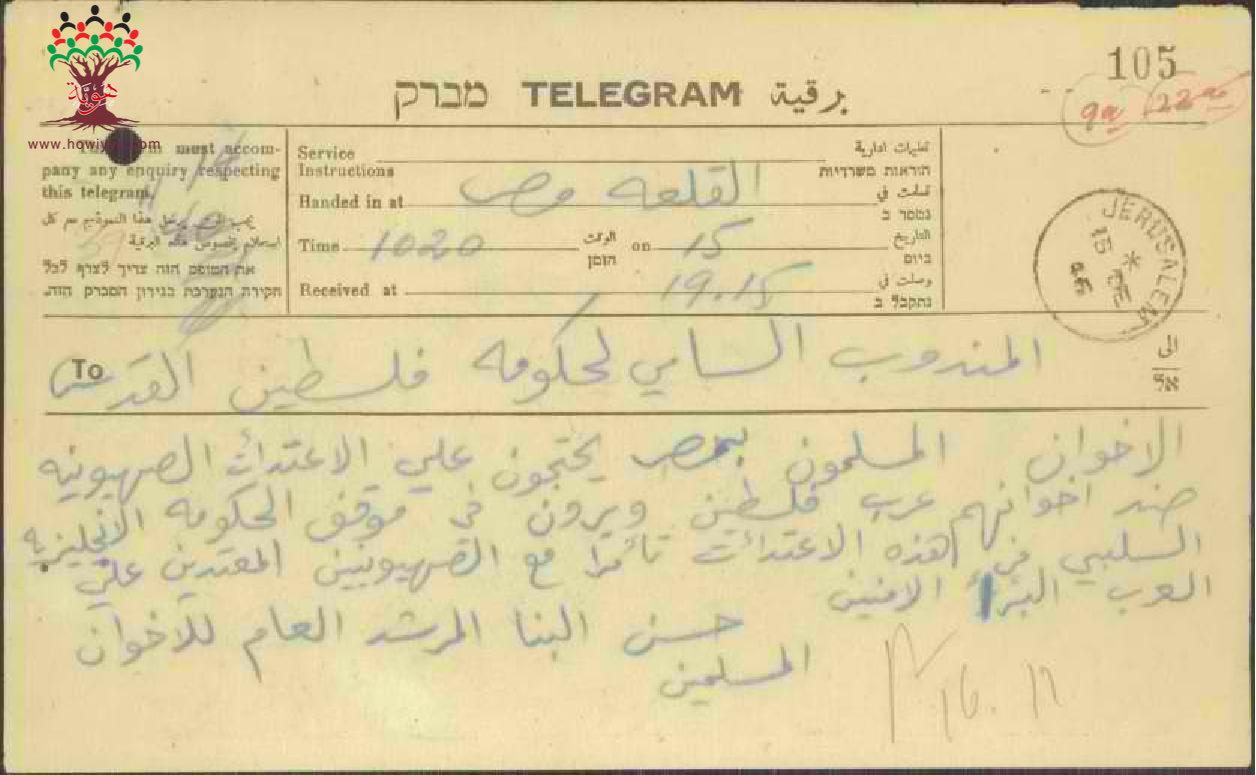 105
9a 22
هوية
www.howiyya.com
מברק TELEGRAM برقية
This form must accom-
pany any enquiry respecting
this telegram.
يجب ان يرسل هذا النموذج مع كل
استعلام بخصوص هذه البرقية
את הטופס הזה צריך לצרף לכל
חקירה הנערכת בנידון המברק הזה.
Service
Instructions
تعليمات ادارية
הוראות משרדיות
Handed in at القلعه مصر سلمت في
נמסר ב
Time 1020 الوقت
הזמן
on 15 التاريخ
ביום
Received at 19.15 وصلت في
נתקבל ב
JERUSALEM
15 DE
*
To المندوب السامي لحكومه فلسطين القدس الى
אל
الاخوان المسلمون بمصر يحتجون علي الاعتدائت الصهيونيه
ضد اخوانهم عرب فلسطين ويرون في موقف الحكومه الانجليزيه
السلبي في هذه الاعتدائت تأمرا مع الصهيونيين المعتدين علي
العرب البرأ الامنين
حسن البنا المرشد العام للاخوان
المسلمين
16.12